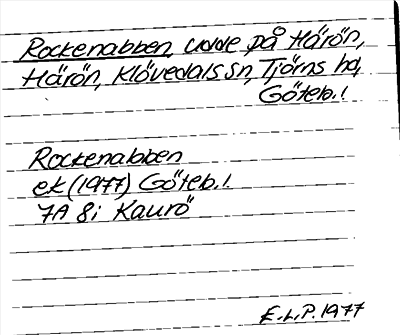 Rockenabben, udde på Härön,
Härön, Klövedals sn, Tjörns hd,
Göteb.l.
Rockenabben
ek (1977) Göteb.l.
7A 8i Kaurö
E.L.P. 1977